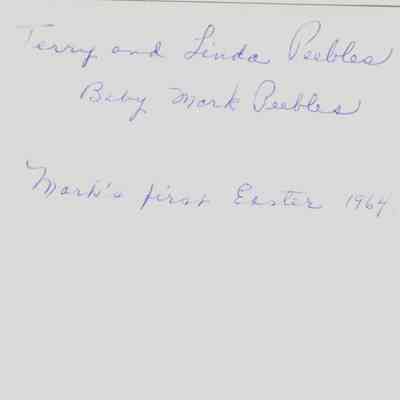 Terry and Linda Peebles
Baby Mark Peebles
Mark's first Easter 1964